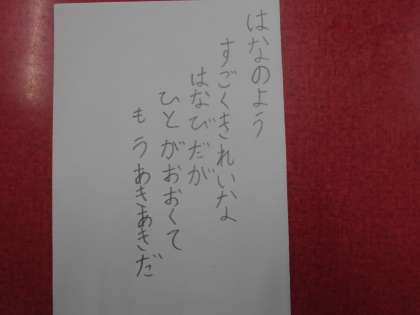 はなのよう
すごくきれいな
はなびだが
ひとがおおくて
もうあきあきだ